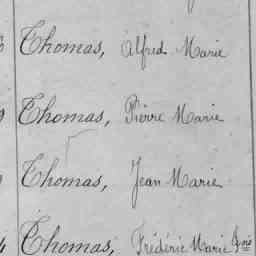 Thomas, Alfred Marie
Thomas, Pierre Marie
Thomas, Jean Marie
Thomas, Frédéric Marie